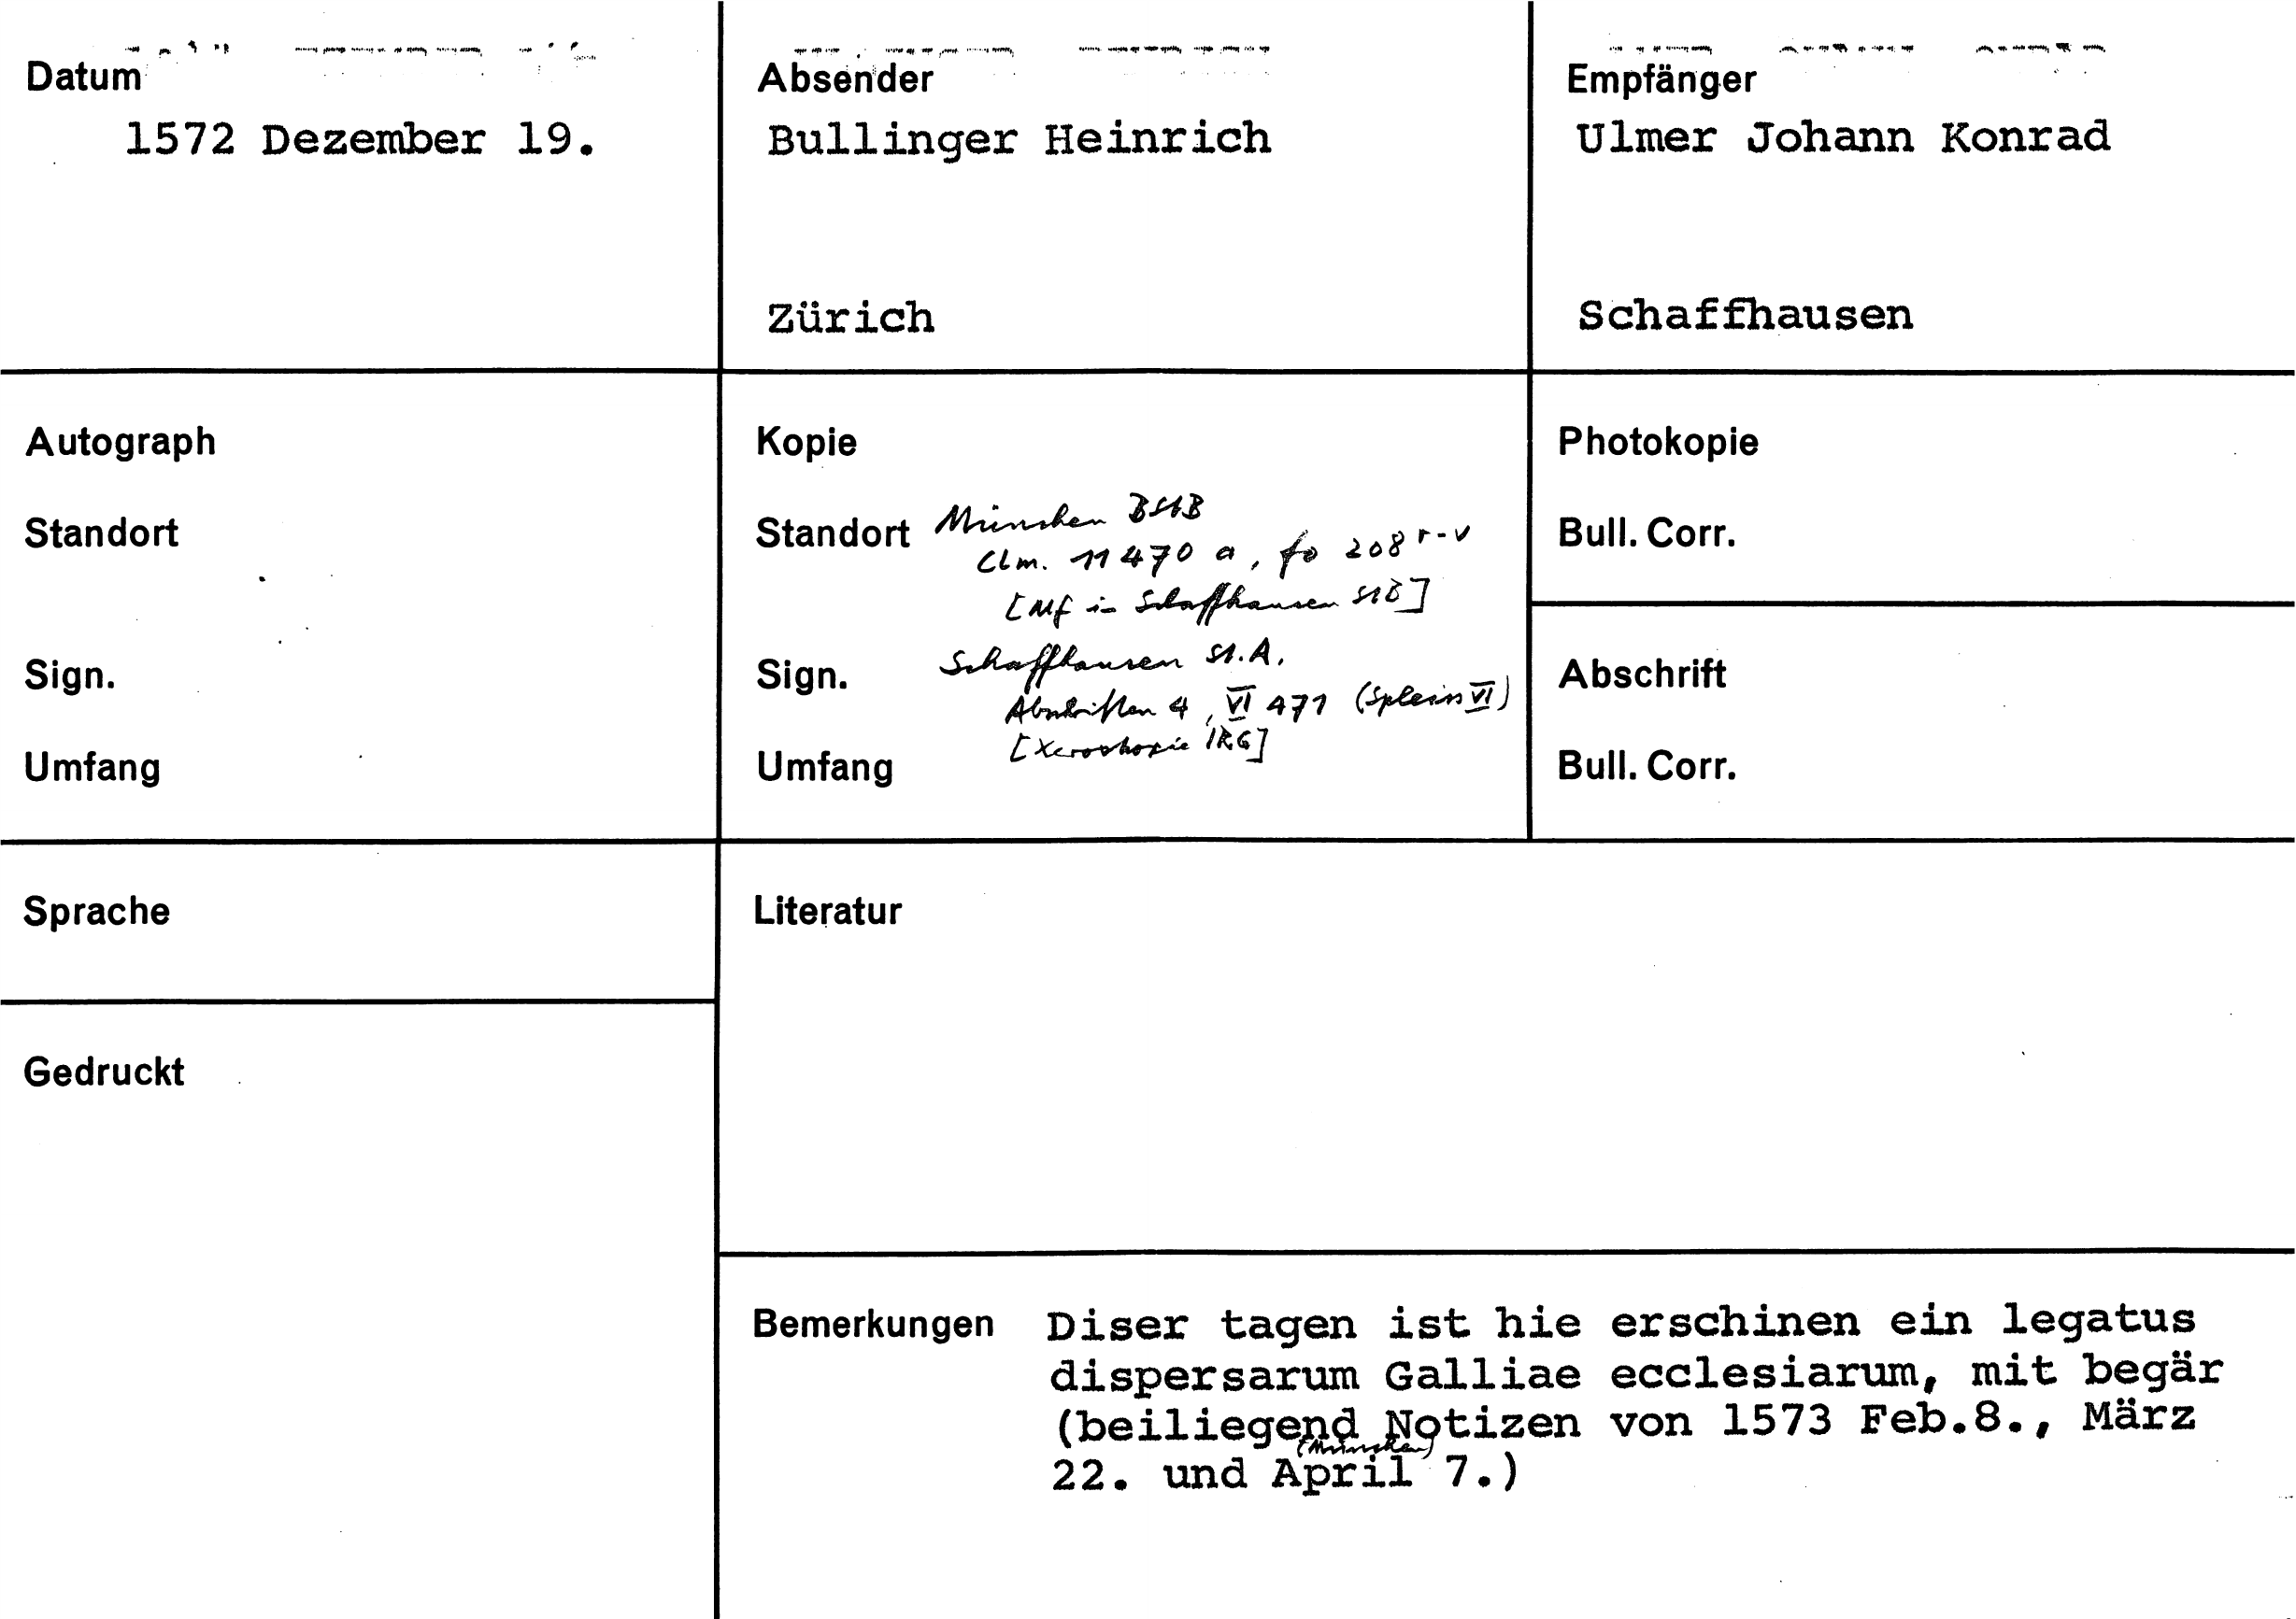 Datum
1572 Dezember 19.
Absender
Bullinger Heinrich
Zürich
Empfänger
Ulmer Johann Konrad
Schaffhausen
Autograph
Standort
Sign.
Umfang
Kopie
Standort München BStB
Clm. 11470 a, fo 208 r-v
[Mf in Schaffhausen StB]
Sign. Schaffhausen St.A.
Abschriften 4, VI 471 (Spleiss VI)
[Xerokopie IRG]
Umfang
Photokopie
Bull. Corr.
Abschrift
Bull. Corr.
Sprache
Literatur
Gedruckt
Bemerkungen Diser tagen ist hie erschinen ein legatus
dispersarum Galliae ecclesiarum, mit begär
(beiliegend Notizen von 1573 Feb.8., März
(München)
22. und April 7.)